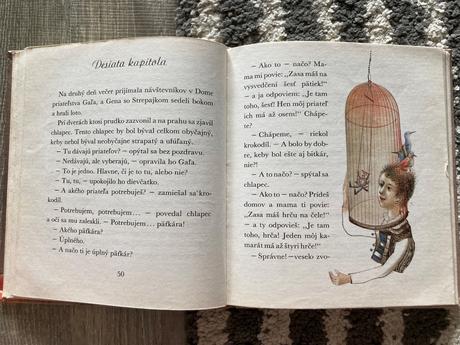 Desiata kapitola
Na druhý deň večer prijímala návštevníkov v Dome
priateľstva Gaľa, a Gena so Strepajkom sedeli bokom
a hrali loto.
Pri dverách ktosi prudko zazvonil a na prahu sa zjavil
chlapec. Tento chlapec by bol býval celkom obyčajný,
keby nebol býval neobyčajne strapatý a udúfaný.
– Tu dávajú priateľov? – opýtal sa bez pozdravu.
– Nedávajú, ale vyberajú, – opravila ho Gaľa.
– To je jedno. Hlavne, či je to tu, alebo nie?
– Tu, tu, – upokojilo ho dievčatko.
– A akého priateľa potrebuješ? – zamiešal sa kro-
kodíl.
– Potrebujem, potrebujem... – povedal chlapec
a oči sa mu zaleskli. – Potrebujem... päťkára!
– Akého päťkára?
– Úplného.
– A načo ti je úplný päťkár?
50
– Ako to – načo? Ma-
ma mi povie: „Zasa máš na
vysvedčení šesť päťiek!“
– a ja odpoviem: „Je tam
toho, šesť! Hen môj priateľ
ich má až osem!“ Chápe-
te?
– Chápeme, – riekol
krokodíl. – A bolo by dob-
re, keby bol ešte aj bitkár,
nie?!
– A načo to? – spýtal sa
chlapec.
– Ako to – načo? Prídeš
domov a mama ti povie:
„Zasa máš hrču na čele!“
– a ty odpovieš: „Je tam
toho, hrča! Jeden môj ka-
marát má až štyri hrče!“
– Správne! – veselo zvo-